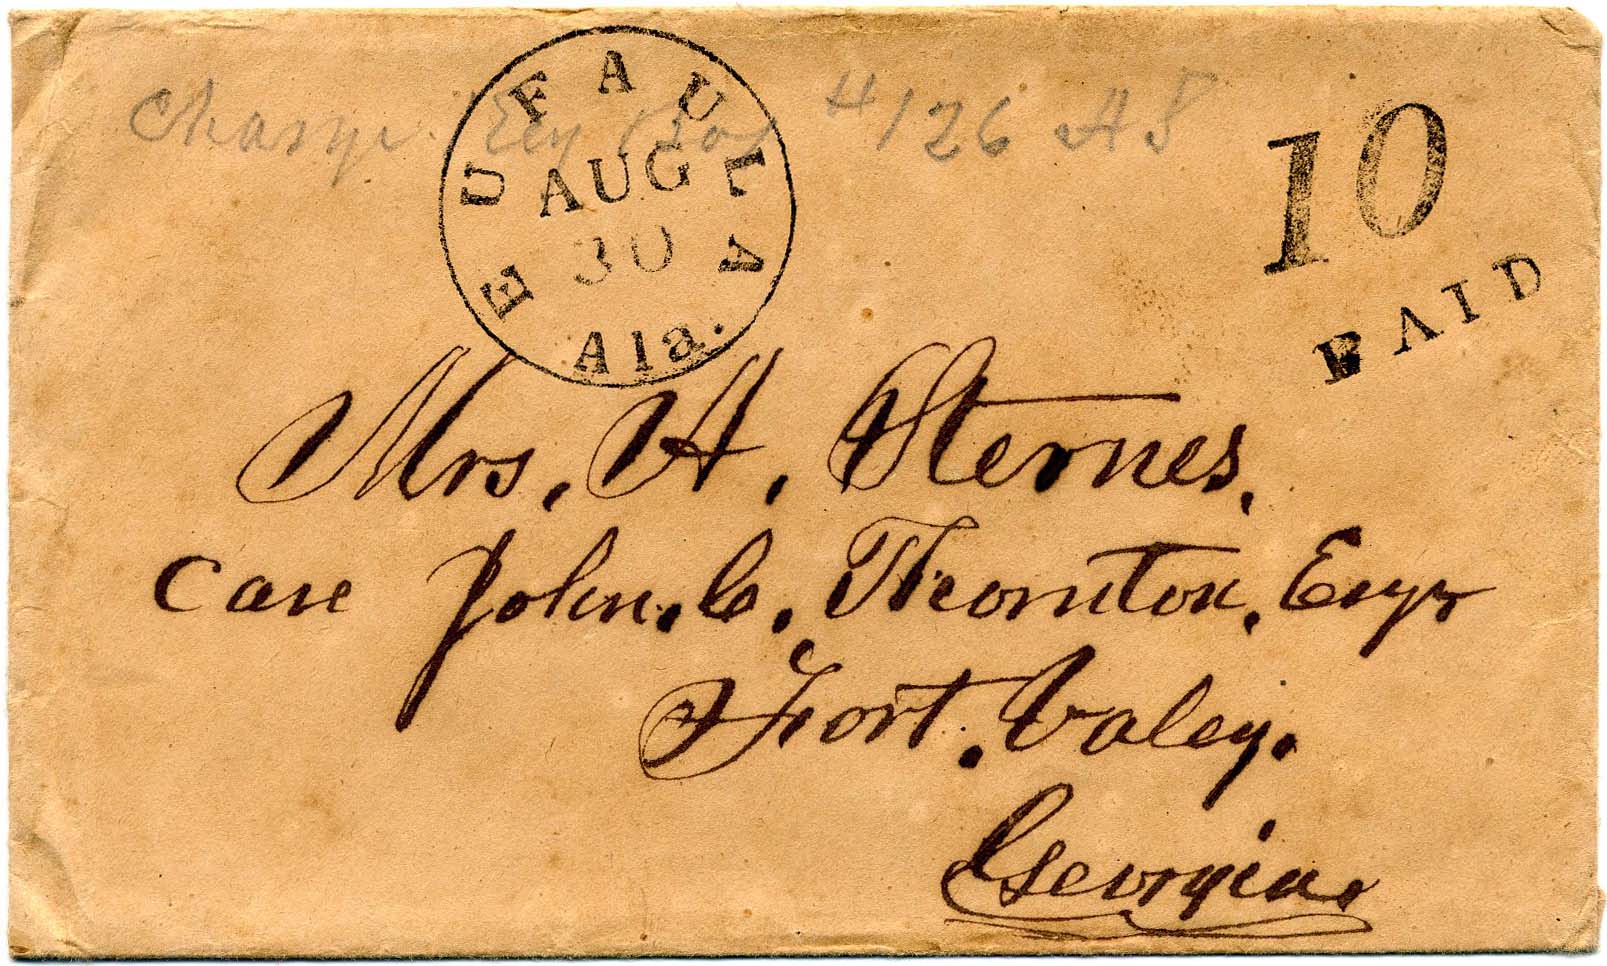 Charge Box #126
EUFAULA
AUG
30
Ala.
10
PAID
Mrs. H. Sternes.
Care John. C. Thornton, Esqr
Fort. Valey.
Georgia.